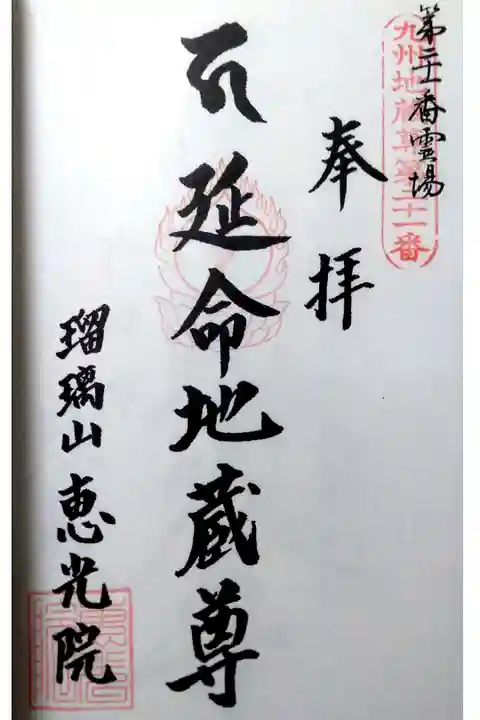 第二十一番霊場
九州地蔵尊第二十一番
奉拝
延命地蔵尊
瑠璃山恵光院